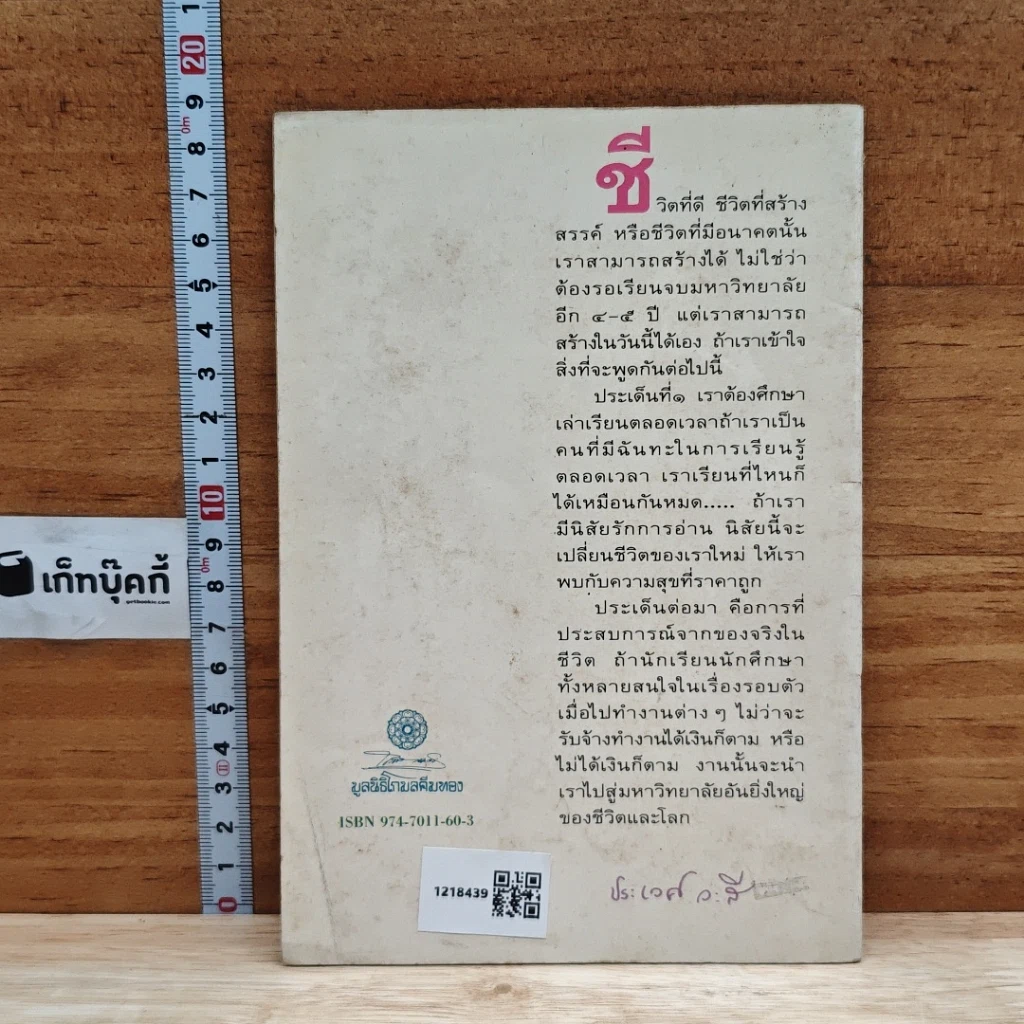 ชีวิตที่ดี ชีวิตที่สร้าง
สรรค์ หรือชีวิตที่มีอนาคตนั้น
เราสามารถสร้างได้ ไม่ใช่ว่า
ต้องรอเรียนจบมหาวิทยาลัย
อีก ๔-๕ ปี แต่เราสามารถ
สร้างในวันนี้ได้เอง ถ้าเราเข้าใจ
สิ่งที่จะพูดกันต่อไปนี้
ประเด็นที่๑ เราต้องศึกษา
เล่าเรียนตลอดเวลาถ้าเราเป็น
คนที่มีฉันทะในการเรียนรู้
ตลอดเวลา เราเรียนที่ไหนก็
ได้เหมือนกันหมด..... ถ้าเรา
มีนิสัยรักการอ่าน นิสัยนี้จะ
เปลี่ยนชีวิตของเราใหม่ ให้เรา
พบกับความสุขที่ราคาถูก
ประเด็นต่อมา คือการที่
ประสบการณ์จากของจริงใน
ชีวิต ถ้านักเรียนนักศึกษา
ทั้งหลายสนใจในเรื่องรอบตัว
เมื่อไปทำงานต่าง ๆ ไม่ว่าจะ
รับจ้างทำงานได้เงินก็ตาม หรือ
ไม่ได้เงินก็ตาม งานนั้นจะนำ
เราไปสู่มหาวิทยาลัยอันยิ่งใหญ่
ของชีวิตและโลก
ประเวศ วะสี
มูลนิธิโกมลคีมทอง
ISBN 974-7011-60-3
1218439
เก็ทบุ๊คกี้
getbookie.com
1
20
9
0m
8
7
6
5
4
3
2
1
10
9
0m
8
7
6
5
4
3
2
1
0